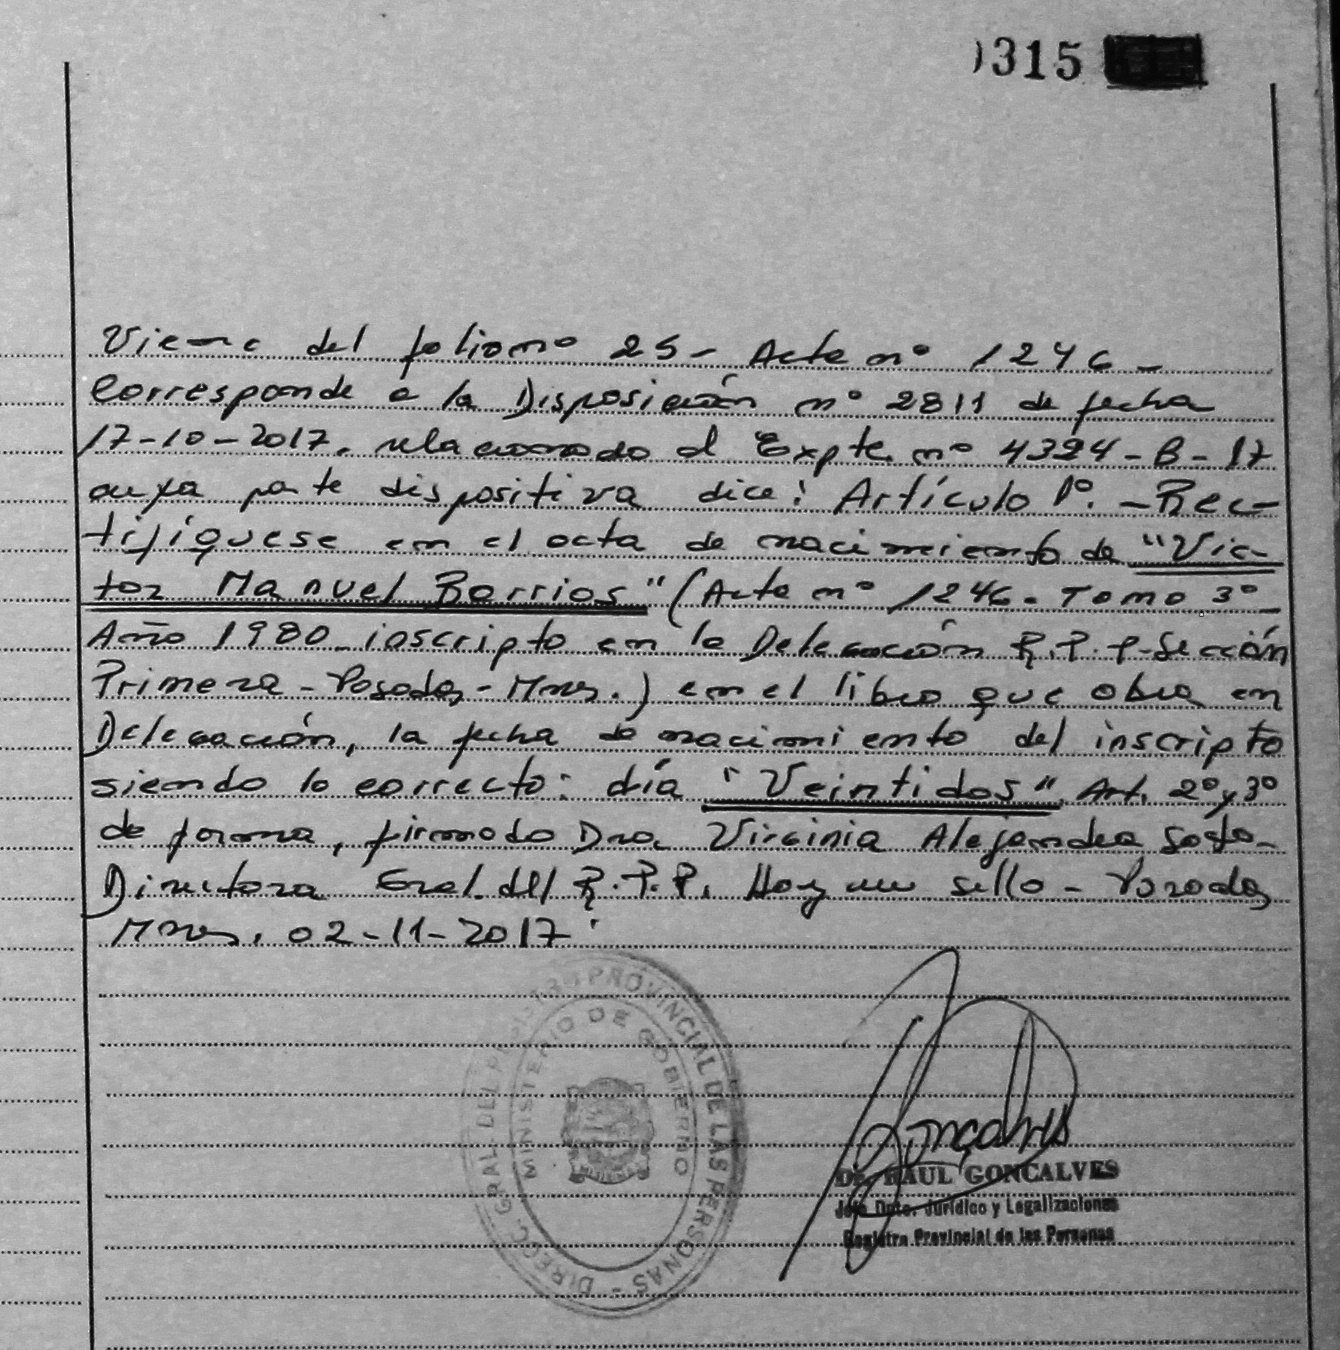 315
Viene del folio nº 25 - Acta nº 1246 -
Corresponde a la Disposición nº 2811 de fecha
17-10-2017. relacionado al Expte. nº 4324-B-17
cuya parte dispositiva dice: Artículo 1º. - Rec-
tifíquese en el acta de nacimiento de "Víc-
tor Manuel Barrios" (Acta nº 1246 - Tomo 3º -
Año 1980 inscripto en la Delegación R.P.P - Sección
Primera - Posadas - Mnes.) en el libro que obra en
Delegación, la fecha de nacimiento del inscripto
siendo lo correcto: día "Veintidos". Art. 2º y 3º
de forma, firmado Dra. Virginia Alejandra Soto -
Directora Gral. del R.P.P. Hay un sello - Posadas,
Mnes. 02-11-2017
DIREC. GRAL. DEL REGISTRO PROVINCIAL DE LAS PERSONAS -
MINISTERIO DE GOBIERNO
Gonçalves
Dr. RAUL GONCALVES
Jefe Dpto. Jurídico y Legalizaciones
Registro Provincial de las Personas